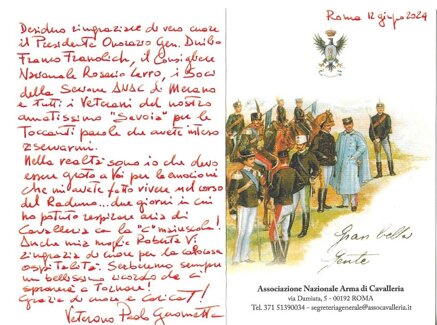 Desidero ringraziare di vero cuore
il Presidente Onorario Gen. Duilio
Franco Franolich, il Consigliere
Nazionale Rosario
i Soci
della Sezione ANAC di Merano
e tutti i Veterani del nostro
amatissimo "Savoia" per le
toccanti parole che avete inteso
riservarmi.
Nella realtà sono io che devo
essere grato a Voi per le emozioni
che mi avete fatto vivere nel corso
del Raduno... due giorni in cui
ho potuto respirare aria di
Cavalleria con la "C" maiuscola!
Anche mia moglie Roberta Vi
ringrazia di cuore per la calorosa
ospitalità. Serberemo sempre
un bellissimo ricordo
Grazie di cuore e Caricat!
Veterano Paolo
Roma 12 giugno 2024
Gran bella
gente
Associazione Nazionale Arma di Cavalleria
via Damiata, 5 - 00192 ROMA
Tel. 371 51390034 - segreteriagenerale@assocavalleria.it